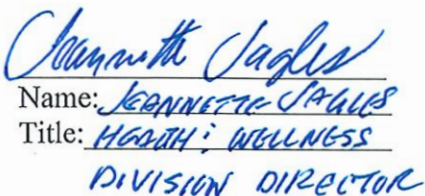 Jeannette Jagles
Name: JEANNETTE JAGLES
Title: HEALTH & WELLNESS
DIVISION DIRECTOR